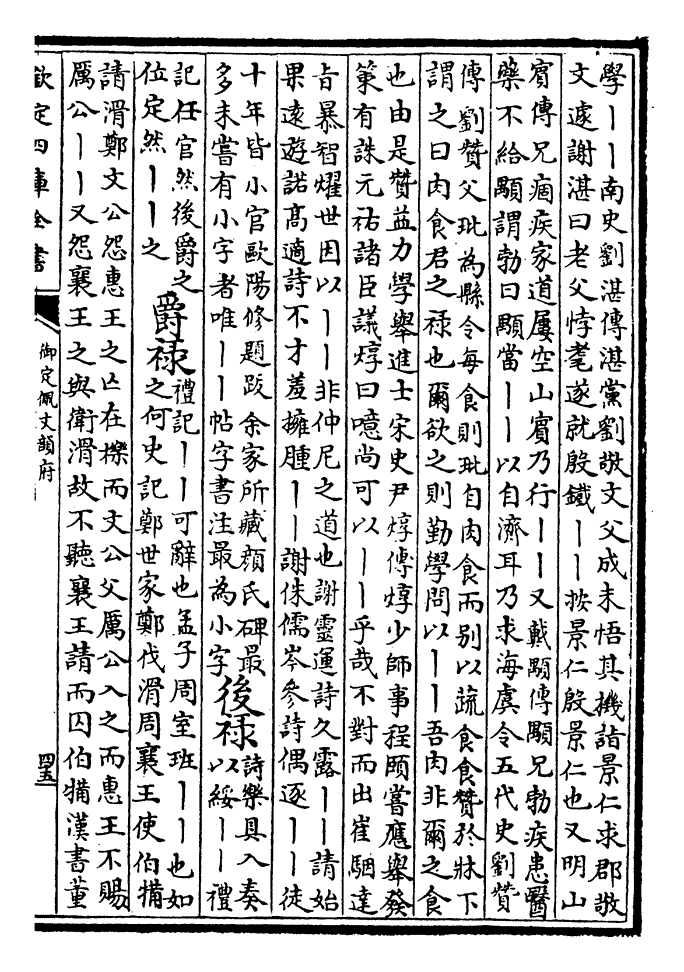 學丨丨南史劉湛傳湛黨劉敬文父成未悟其機詣景仁求郡敬
文遽謝湛曰老父悖耄遂就殷鐵丨丨按景仁殷景仁也又明山
賓傳兄痼疾家道屢空山賓乃行丨丨又戴顒傳顒兄勃疾患醫
藥不給顒謂勃曰顒當丨丨以自濟耳乃求海虞令五代史劉贊
傳劉贊父玭為縣令每食則玭自肉食而别以蔬食食贊於牀下
謂之曰肉食君之禄也爾欲之則勤學問以丨丨吾肉非爾之食
也由是贊益力學舉進士宋史尹焞傳焞少師事程頤嘗應舉發
策有誅元祐諸臣議焞曰噫尚可以丨丨乎哉不對而出崔駰達
㫖暴智燿世因以丨丨非仲尼之道也謝靈運詩久露丨丨請始
果遠遊諾高適詩不才羞擁腫丨丨謝侏儒岑參詩偶逐丨丨徒
十年皆小官歐陽修題跋余家所藏顔氏碑最
多未嘗有小字者唯丨丨帖字書注最為小字
後禄
詩樂具入奏
以綏丨丨禮
記任官然後爵之
位定然丨丨之
爵禄
禮記丨丨可辭也孟子周室班丨丨也如
之何史記鄭世家鄭伐滑周襄王使伯𤚼
請滑鄭文公怨惠王之亡在櫟而文公父厲公入之而惠王不賜
厲公丨丨又怨襄王之與衛滑故不聽襄王請而囚伯𤚼漢書董
欽定四庫全書
御定佩文韻府
四五